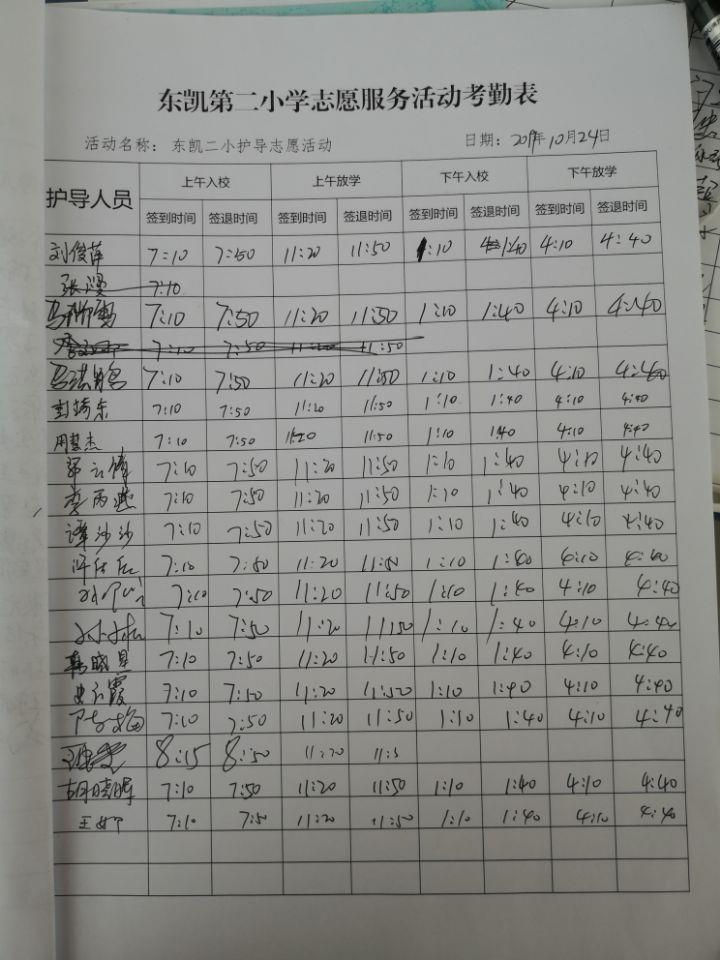 东凯第二小学志愿服务活动考勤表
活动名称： 东凯二小护导志愿活动 日期：2019年10月24日
护导人员 上午入校 上午放学 下午入校 下午放学
签到时间 签退时间 签到时间 签退时间 签到时间 签退时间 签到时间 签退时间
刘俊萍 7:10 7:50 11:20 11:50 1:10 1:40 4:10 4:40
张漫 7:10
7:10 7:50 11:20 11:50 1:10 1:40 4:10 4:40
7:10 7:50 11:20 11:50
7:10 7:50 11:20 11:50 1:10 1:40 4:10 4:40
彭绮东 7:10 7:50 11:20 11:50 1:10 1:40 4:10 4:40
周慧杰 7:10 7:50 11:20 11:50 1:10 1:40 4:10 4:40
7:10 7:50 11:20 11:50 1:10 1:40 4:10 4:40
李丙燕 7:10 7:50 11:20 11:50 1:10 1:40 4:10 4:40
谭沙沙 7:10 7:50 11:20 11:50 1:10 1:40 4:10 4:40
7:10 7:50 11:20 11:50 1:10 1:40 4:10 4:40
7:10 7:50 11:20 11:50 1:10 1:40 4:10 4:40
7:10 7:50 11:20 11:50 1:10 1:40 4:10 4:40
韩晓昱 7:10 7:50 11:20 11:50 1:10 1:40 4:10 4:40
史红霞 7:10 7:50 11:20 11:50 1:10 1:40 4:10 4:40
7:10 7:50 11:20 11:50 1:10 1:40 4:10 4:40
8:15 8:50 11:20 11:5
胡晓晖 7:10 7:50 11:20 11:50 1:10 1:40 4:10 4:40
7:10 7:50 11:20 11:50 1:10 1:40 4:10 4:40